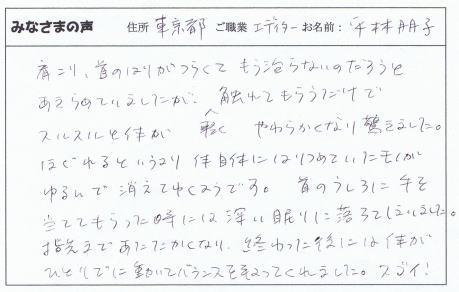 みなさまの声 住所 東京都 ご職業 エディター お名前： 平林朋子
肩こり、首のはりがつらくて もう治らないのだろうと
あきらめていましたが、触れてもらうだけで
スルスルと体が 軽く やわらかくなり 驚きました。
ほぐれるというより 体自体にはりつめていたモノが
ゆるんで 消えてゆくようです。 首のうしろに手を
当ててもらった時には 深い眠りに落ちてしまいました。
指先まであたたかくなり、終わった後には体が
ひとりでに動いてバランスをとってくれました。スゴイ!